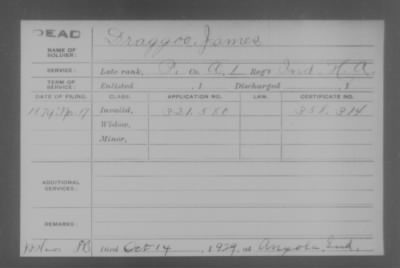 DEAD
NAME OF SOLDIER: Draggoo, James
SERVICE: Late rank, P. Co. A, 1, Reg't Ind. H. A.
TERM OF SERVICE: Enlisted , 1 Discharged , 1
DATE OF FILING. CLASS. APPLICATION NO. LAW. CERTIFICATE NO.
1879 Invalid, 321.580
Widow,
Minor,
ADDITIONAL SERVICES:
REMARKS:
Died Oct 14, 1929, at Angola, Ind.